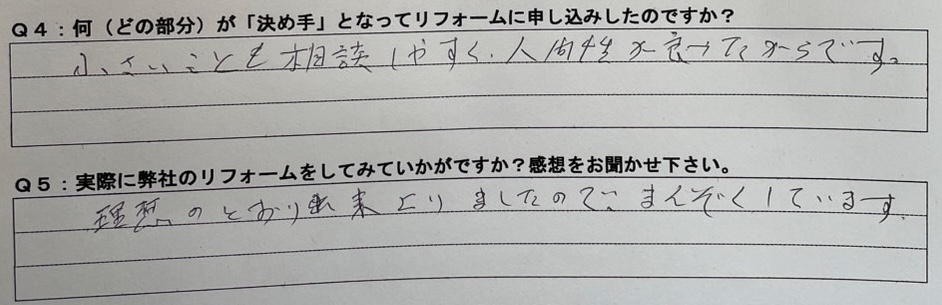 Q4：何（どの部分）が「決め手」となってリフォームに申し込みしたのですか？
小さいことも相談しやすく、人間性が良かったからです。
Q5：実際に弊社のリフォームをしてみていかがですか？感想をお聞かせ下さい。
理想のとおり出来上りましたので、まんぞくしています。